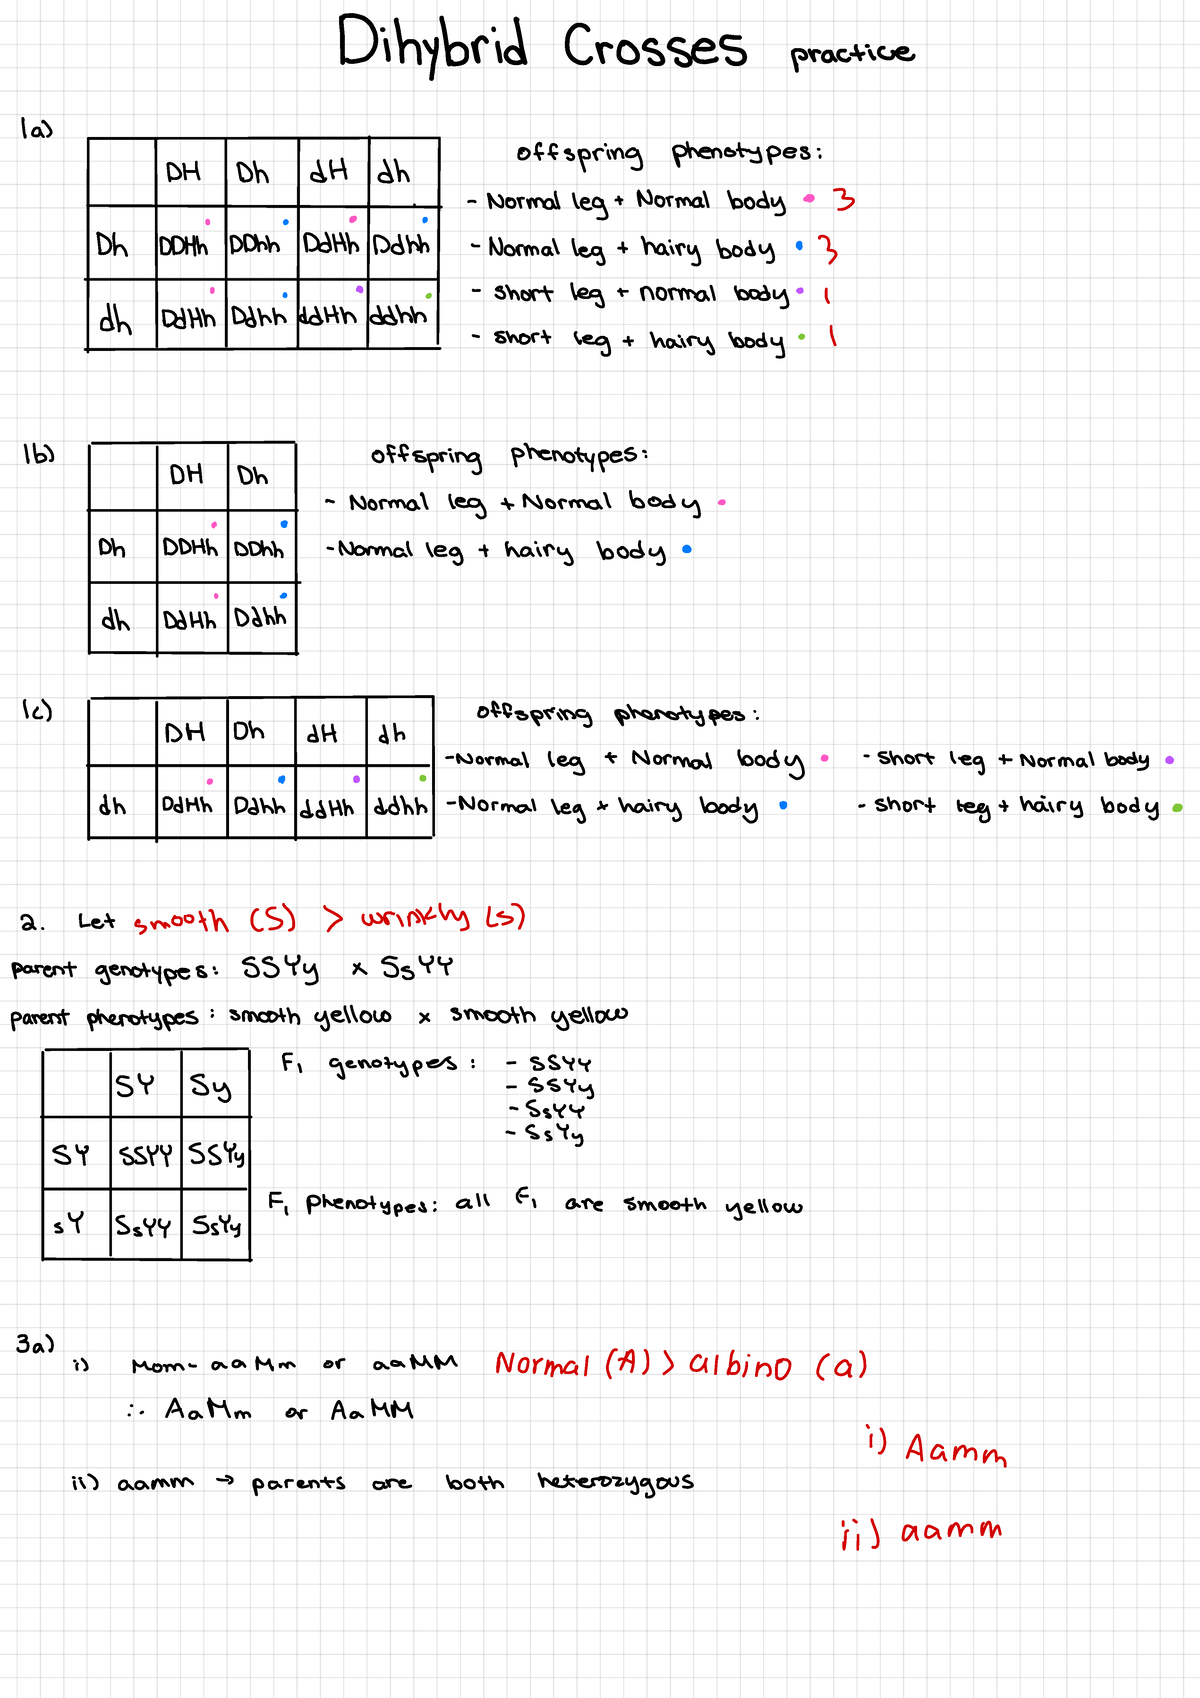 Dihybrid Crosses practice
1a)
DH Dh dH dh
Dh DDHh DDhh DdHh Ddhh
dh DdHh Ddhh ddHh ddhh
offspring phenotypes:
- Normal leg + Normal body 3
- Normal leg + hairy body 3
- short leg + normal body 1
- short leg + hairy body 1
1b)
DH Dh
Dh DDHh DDhh
dh DdHh Ddhh
offspring phenotypes:
- Normal leg + Normal body
- Normal leg + hairy body
1c)
DH Dh dH dh
dh DdHh Ddhh ddHh ddhh
offspring phenotypes:
- Normal leg + Normal body - short leg + Normal body
- Normal leg + hairy body - short leg + hairy body
2. Let smooth (S) > wrinkly (s)
parent genotypes: SSYy x SsYY
parent phenotypes: smooth yellow x smooth yellow
SY Sy
SY SSYY SSYy
sY SsYY SsYy
F1 genotypes: - SSYY
- SSYy
- SsYY
- SsYy
F1 phenotypes: all F1 are smooth yellow
3a)
i) Mom- aaMm or aaMM Normal (A) > albino (a)
∴ AaMm or AaMM
i) Aamm
ii) aamm → parents are both heterozygous
ii) aamm